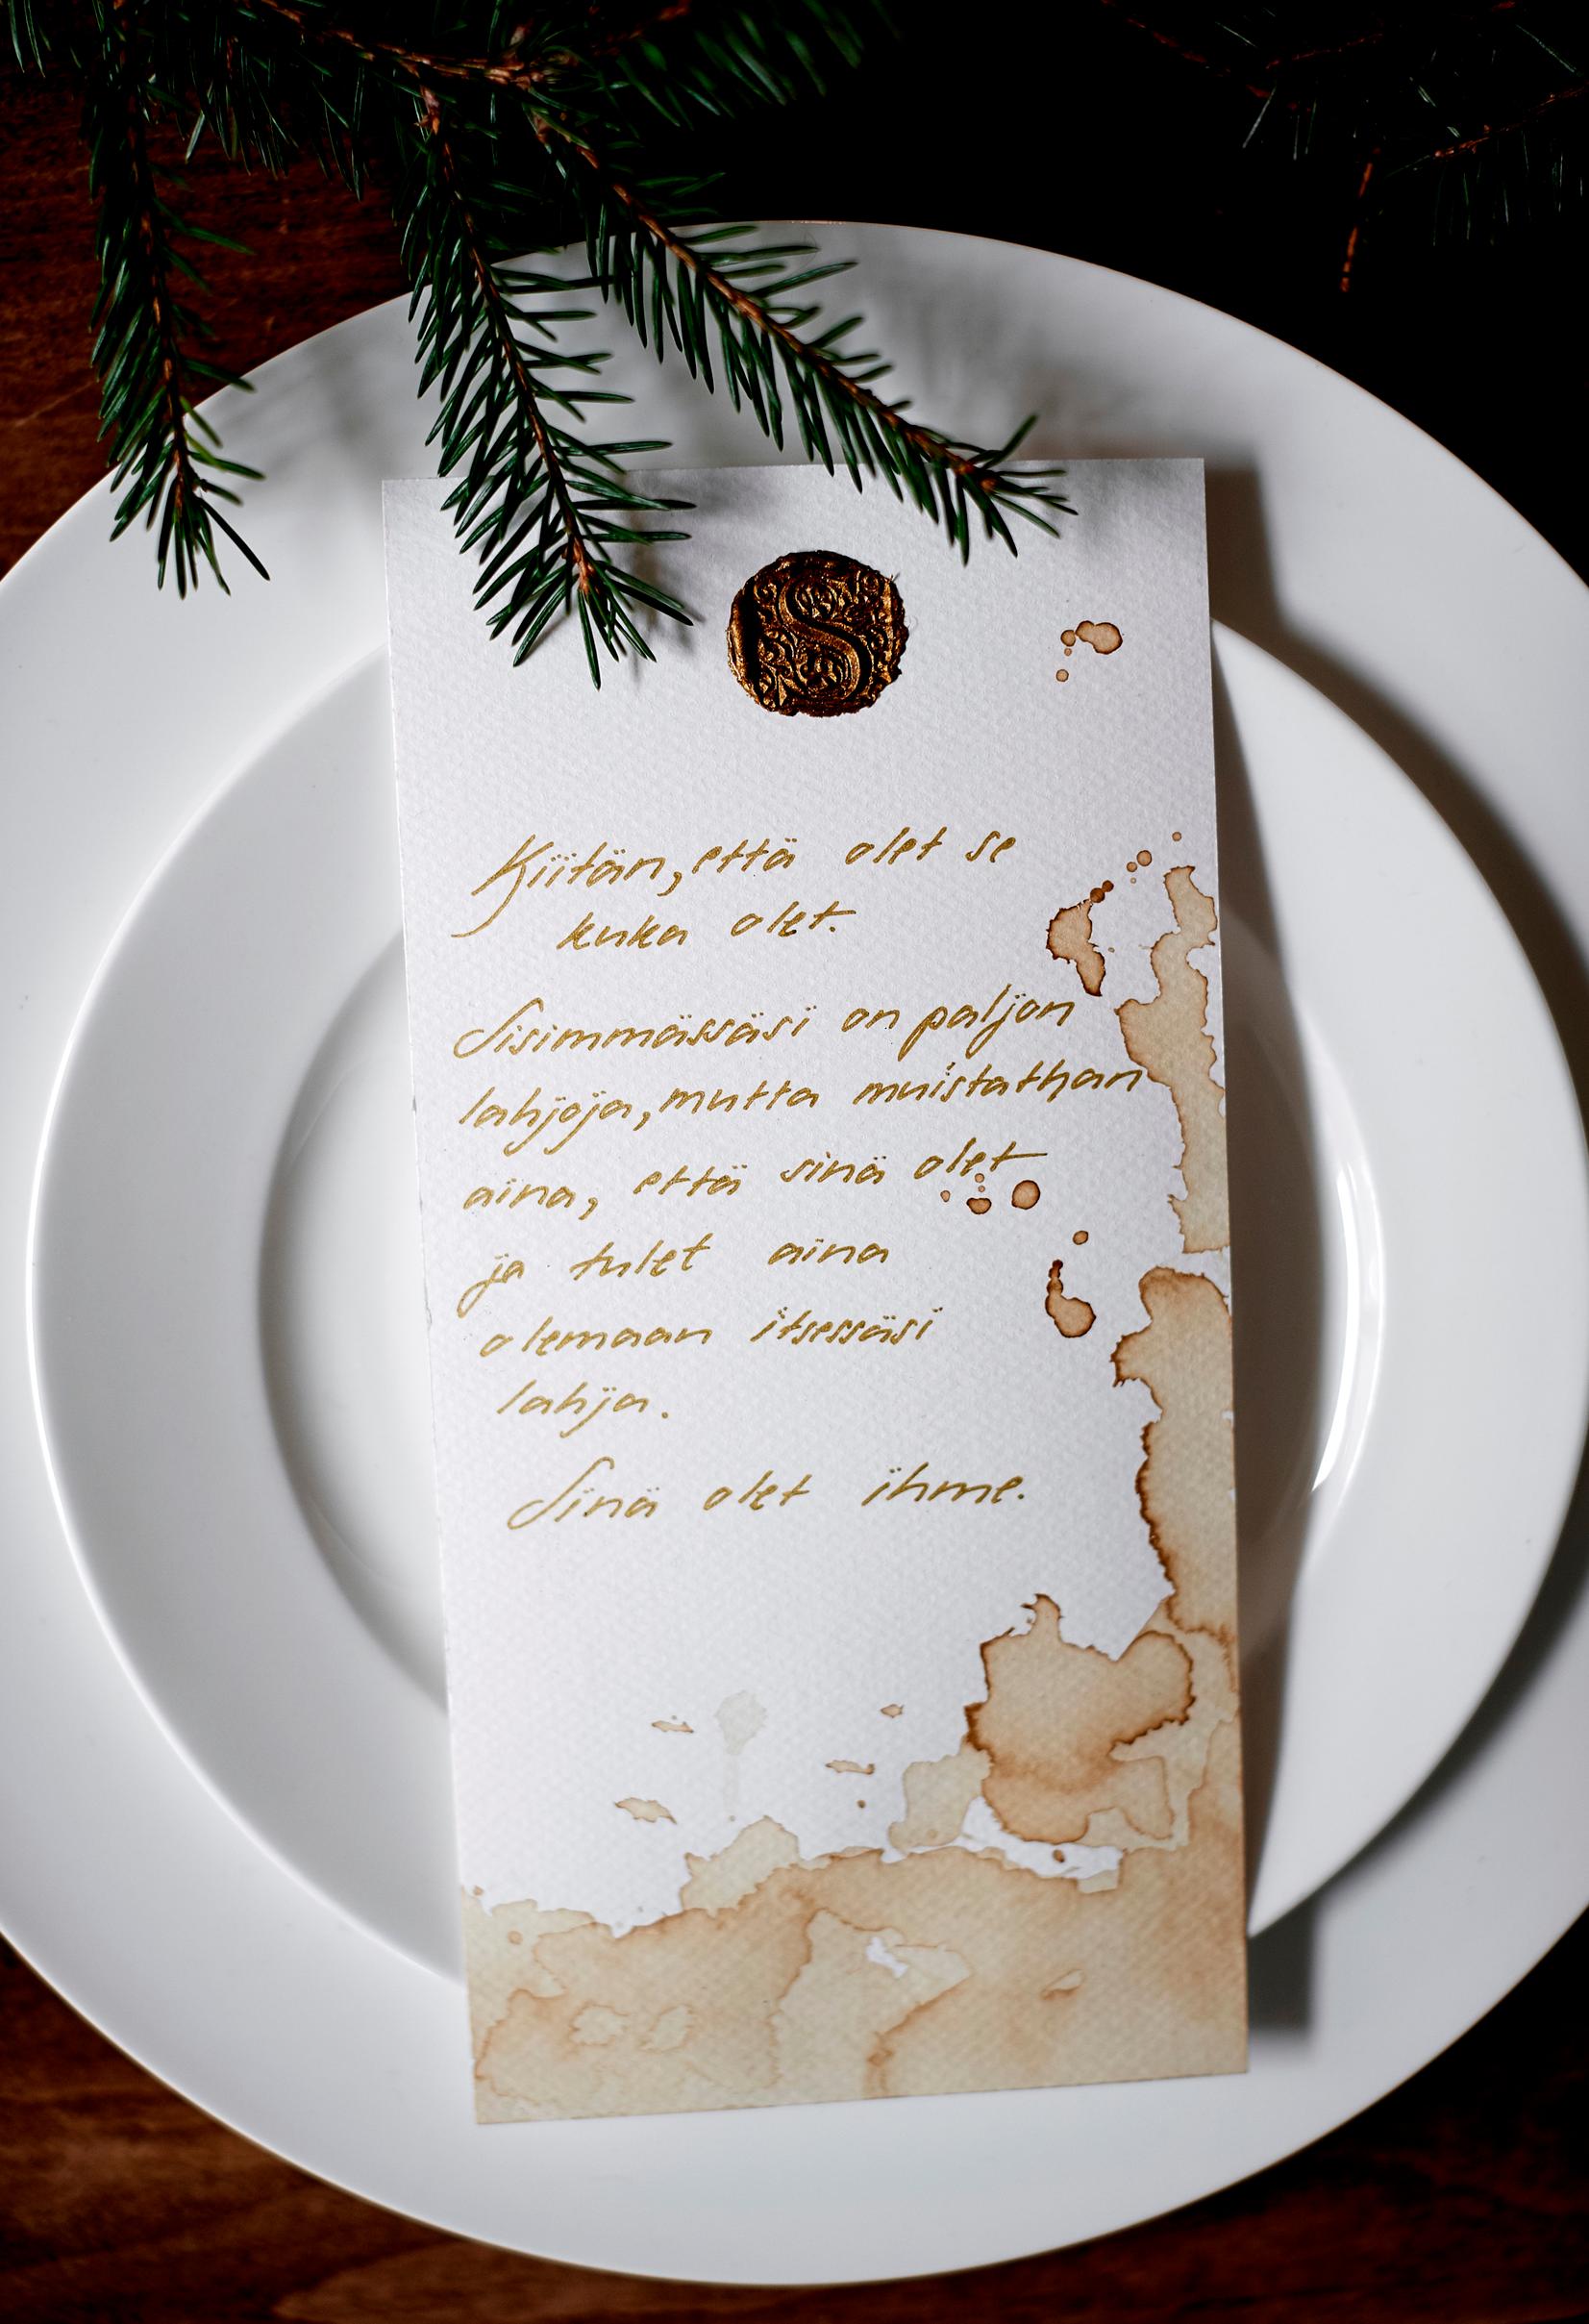 S
Kiitän, että olet se
kuka olet.
Sisimmässäsi on paljon
lahjoja, mutta muistathan
aina, että sinä olet
ja tulet aina
olemaan itsessäsi
lahja.
Sinä olet ihme.